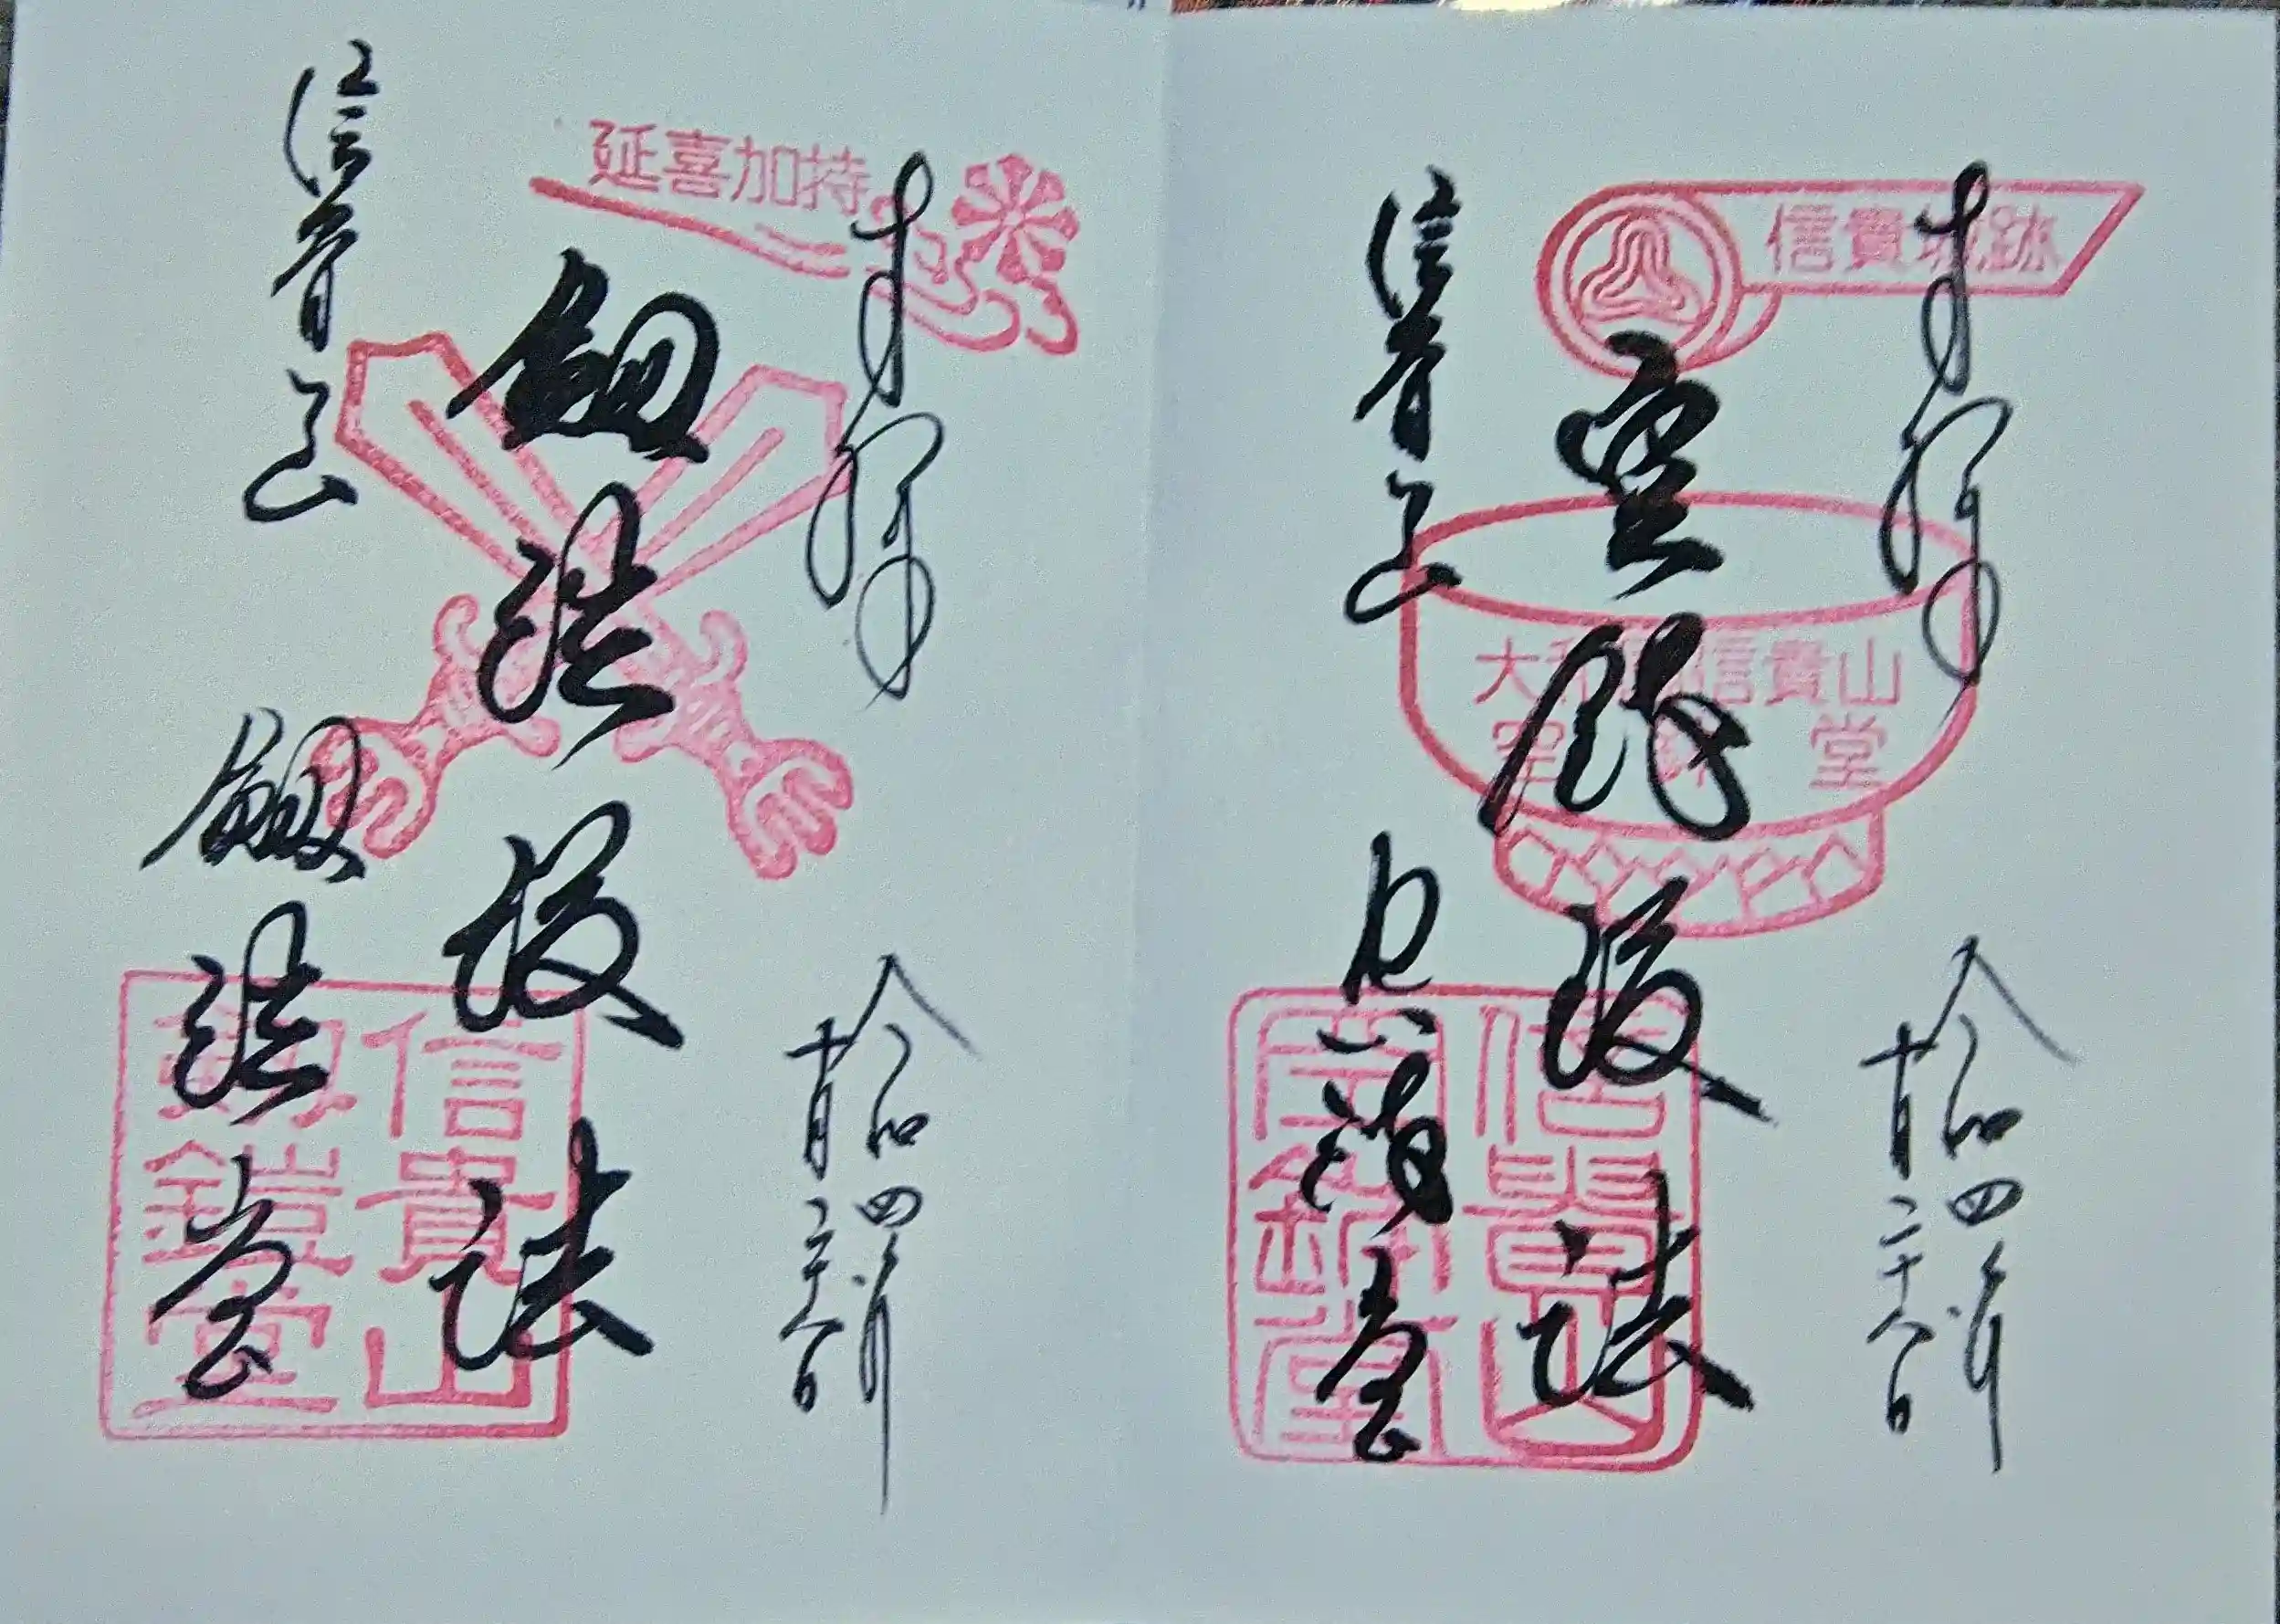 信貴城跡
奉拝
令和四年
十月二十八日
空鉢護法
大和国信貴山
空鉢堂
信貴山
信貴山
空鉢堂
延喜加持
奉拝
令和四年
十月二十八日
剱鎧護法
信貴山
剱鎧堂
信貴山
剱鎧堂